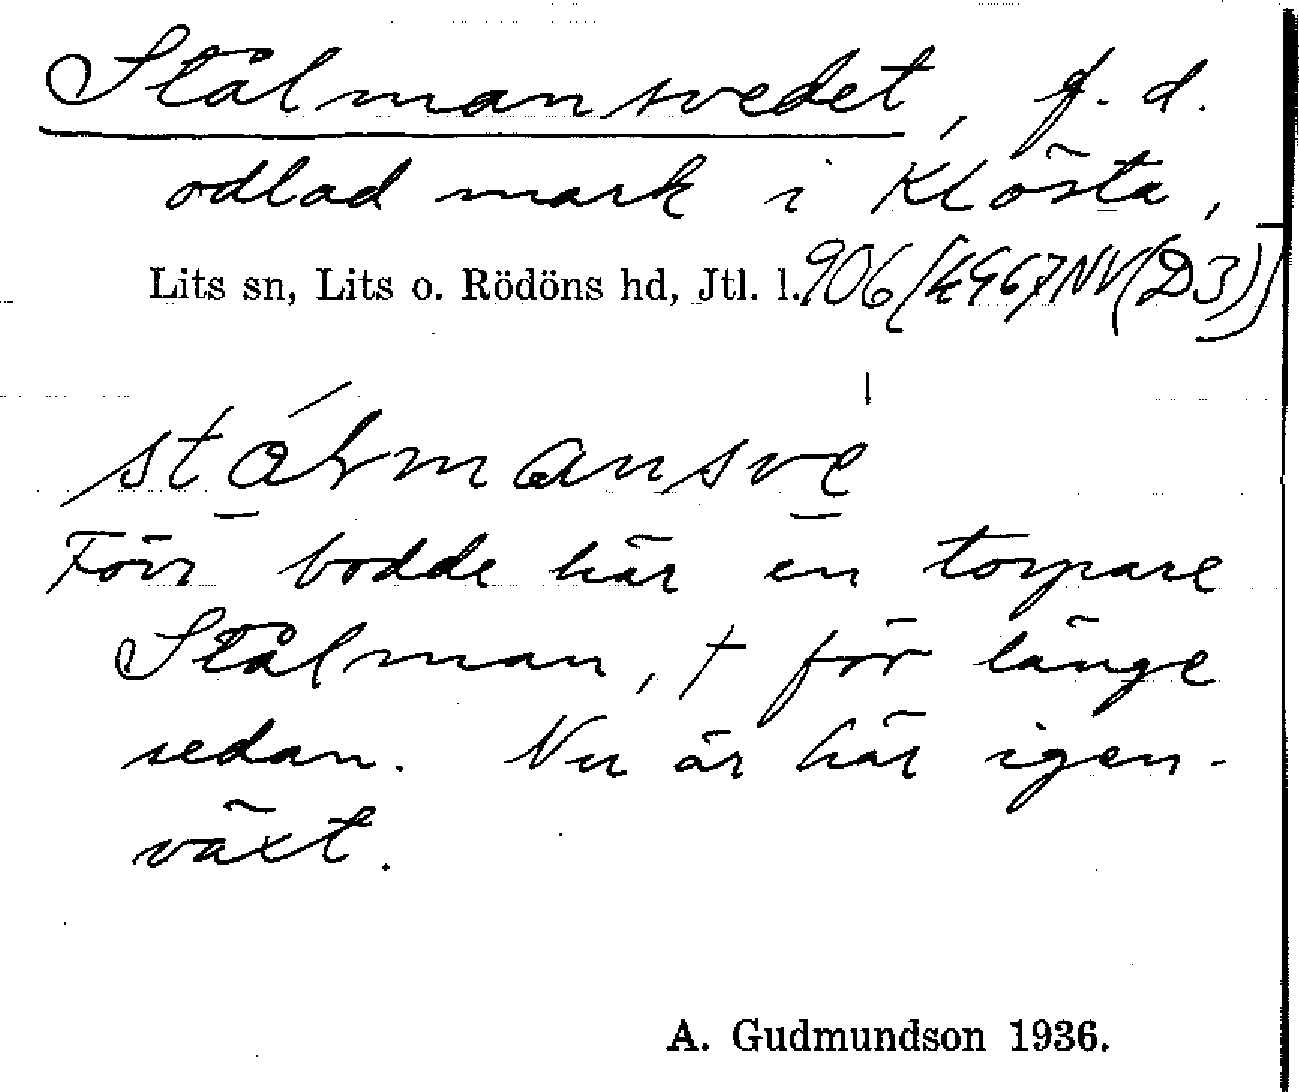 Stålmansvedet, f. d.
odlad mark i Klösta,
Lits sn, Lits o. Rödöns hd, Jtl. l. 906/K967NV(D3))
stålmansve
Förr bodde här en torpare
Stålman, † för länge
sedan. Nu är här igen-
växt.
A. Gudmundson 1936.